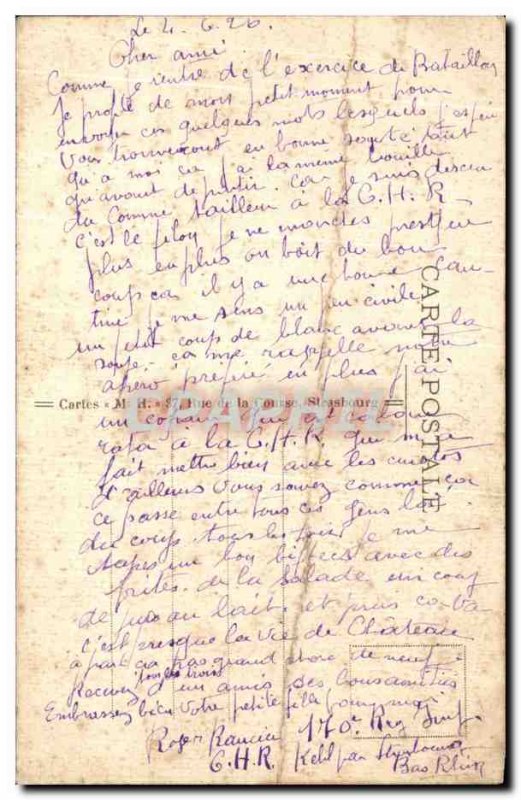 Le 4.6.26.
Cher ami
Comme je rentre de l'exercice de Bataillon
Je profite de mon petit moment pour
envoyer ces quelques mots lesquels j'espère
vous trouveront en bonne santé tant
qu'a moi ça j'ai la meme bouille
qu'avant de partir. car je suis
du comme tailleur à la C.H.R
c'est le filon je ne manches presque
plus, en plus on boit du bon
coup car il y a une bonne can-
tine je me sens un peu civile
un petit coup de blanc avant la
soupe, ça me rappelle notre
apero préféré en plus j'ai
un copain qui
rata à la C.H.R. qui m'a
fait mettre bien avec les cuistos
d'ailleurs vous savez comme ça
ce passe entre tous ces gens là
du coup tous les jours je me
tapes un bon bifteck avec des
frites. de la salade un coup
de jus au lait. et puis ça va
c'est presque la vie de Chateau
à part ça pas grand chose de neuf
Recevez tous les trois d'un amis ses
Embrassez bien votre petite fille pour moi
Roger
C.H.R.
170e Reg Inf.
Kehl par Strasbourg
Bas Rhin
CARTE POSTALE
Cartes « M. H. » 37, Rue de la Course, Strasbourg
CPAPHIL